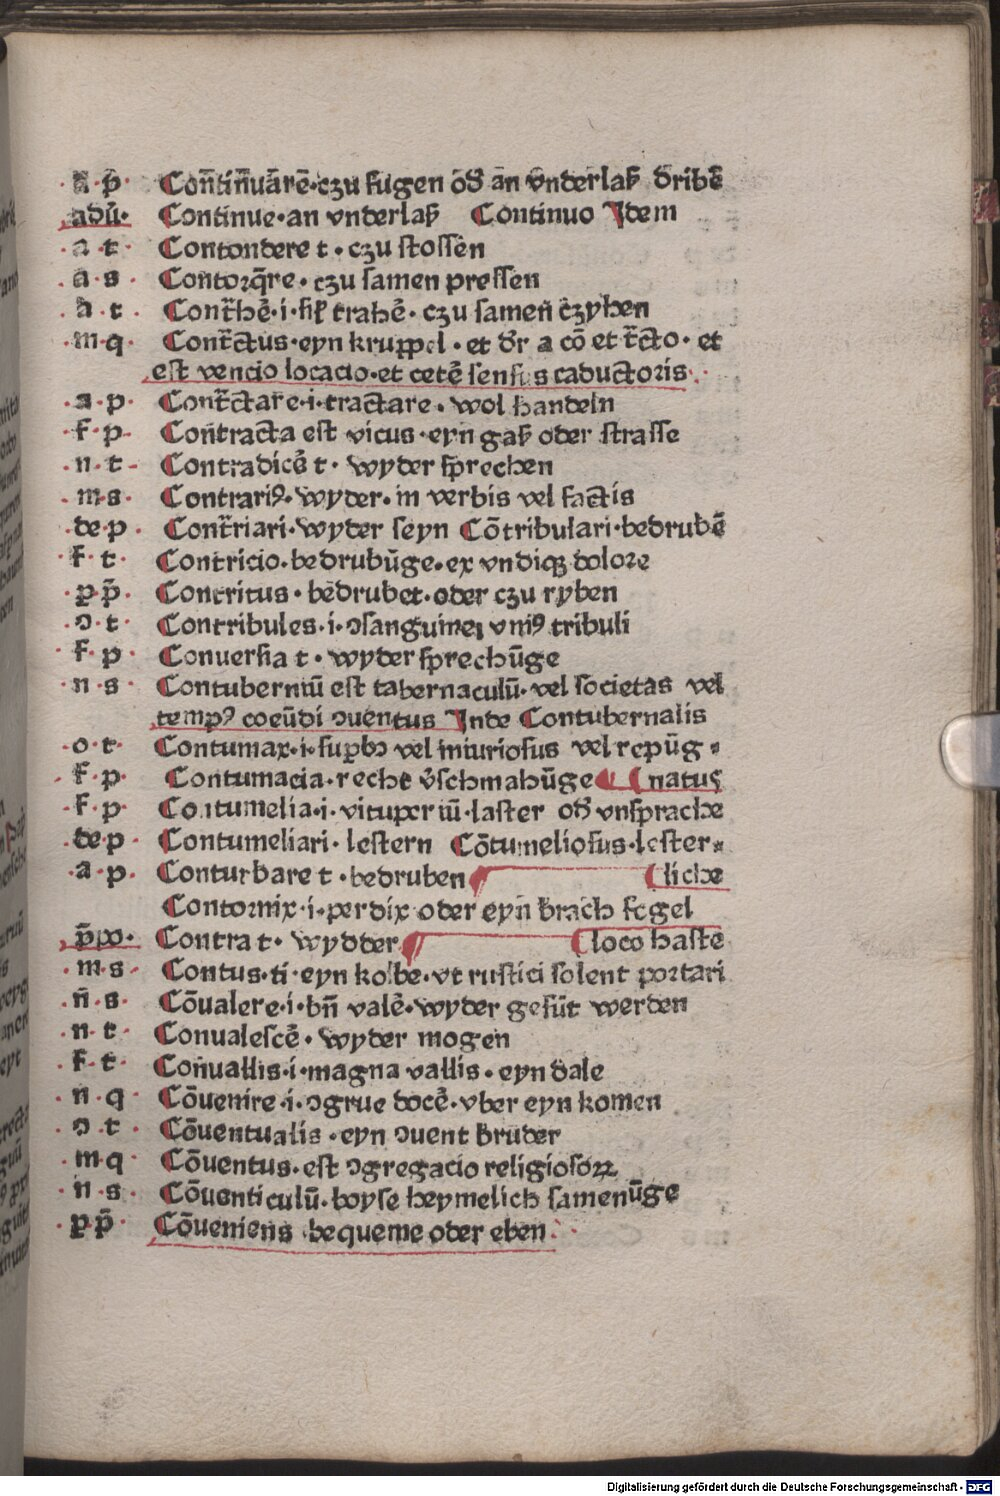 ·a·p̄· Contin̄uārē·czu fugen od̄ an vnderlaß dribē
·adū· Continue·an vnderlaß Continuo Idem
·a·t· Contondere t·czu stossen
·a·s· Contorq̄re·czu samen pressen
·a·t· Cont̄hē·i·sil' trahē·czu samen czyhen
·m·q· Cont̄ctus·eyn kruppel·et dr̄ a cō et t̄cto·et
est vencio locacio·et cetē sensus caductoris·
·a·p· Cont̄ctare·i·tractare·wol handeln
·f·p· Contracta est vicus·eyn gaß oder strasse
·n·t· Contradicē t·wyder sprechen
·m·s· Contrariꝰ·wyder·in verbis vel factis
·de·p· Cont̄riari·wyder seyn Cōtribulari·bedrubē
·f·t· Contricio·bedrubūge·ex vndiqꝫ dolore
·p·p̄· Contritus·bedrubet·oder czu ryben
·ɔ·t· Contribules·i·ɔsanguinei vniꝰ tribuli
·f·p· Conuersia t·wyder sprechūge
·n·s· Contuberniū est tabernaculū·vel societas vel
tempꝰ coeūdi ɔuentus Inde Contubernalis
·o·t· Contumax·i·supbꝰ vel iniuriosus vel repūg⸗
·f·p· Contumacia·recht v̄schmahūge natus
·f·p· Contumelia·i·vituperiū·laster od̄ vnsprache
·de·p· Contumeliari·lestern Cōtumeliosus·lester⸗
·a·p· Conturbare t·bedruben liche
Contornix·i·perdix oder eyn brach fogel
·p̄po· Contra t·wydder loco haste
·m·s· Contus·ti·eyn kolbe·vt rustici solent portari
·n̄·s· Cōualere·i·bn̄ valē·wyder gesūt werden
·n·t· Conualescē·wyder mogen
·f·t· Conuallis·i·magna vallis·eyn dale
·n·q· Cōuenire·i·ɔgrue docē·vber eyn komen
·ɔ·t· Cōuentualis·eyn ɔuent bruder
·m·q· Cōuentus·est ɔgregacio religiosoꝝ
·n·s· Cōuenticulū·boyse heymelich samenūge
·p·p̄· Cōueniens bequeme oder eben·
Digitalisierung gefördert durch die Deutsche Forschungsgemeinschaft - DFG